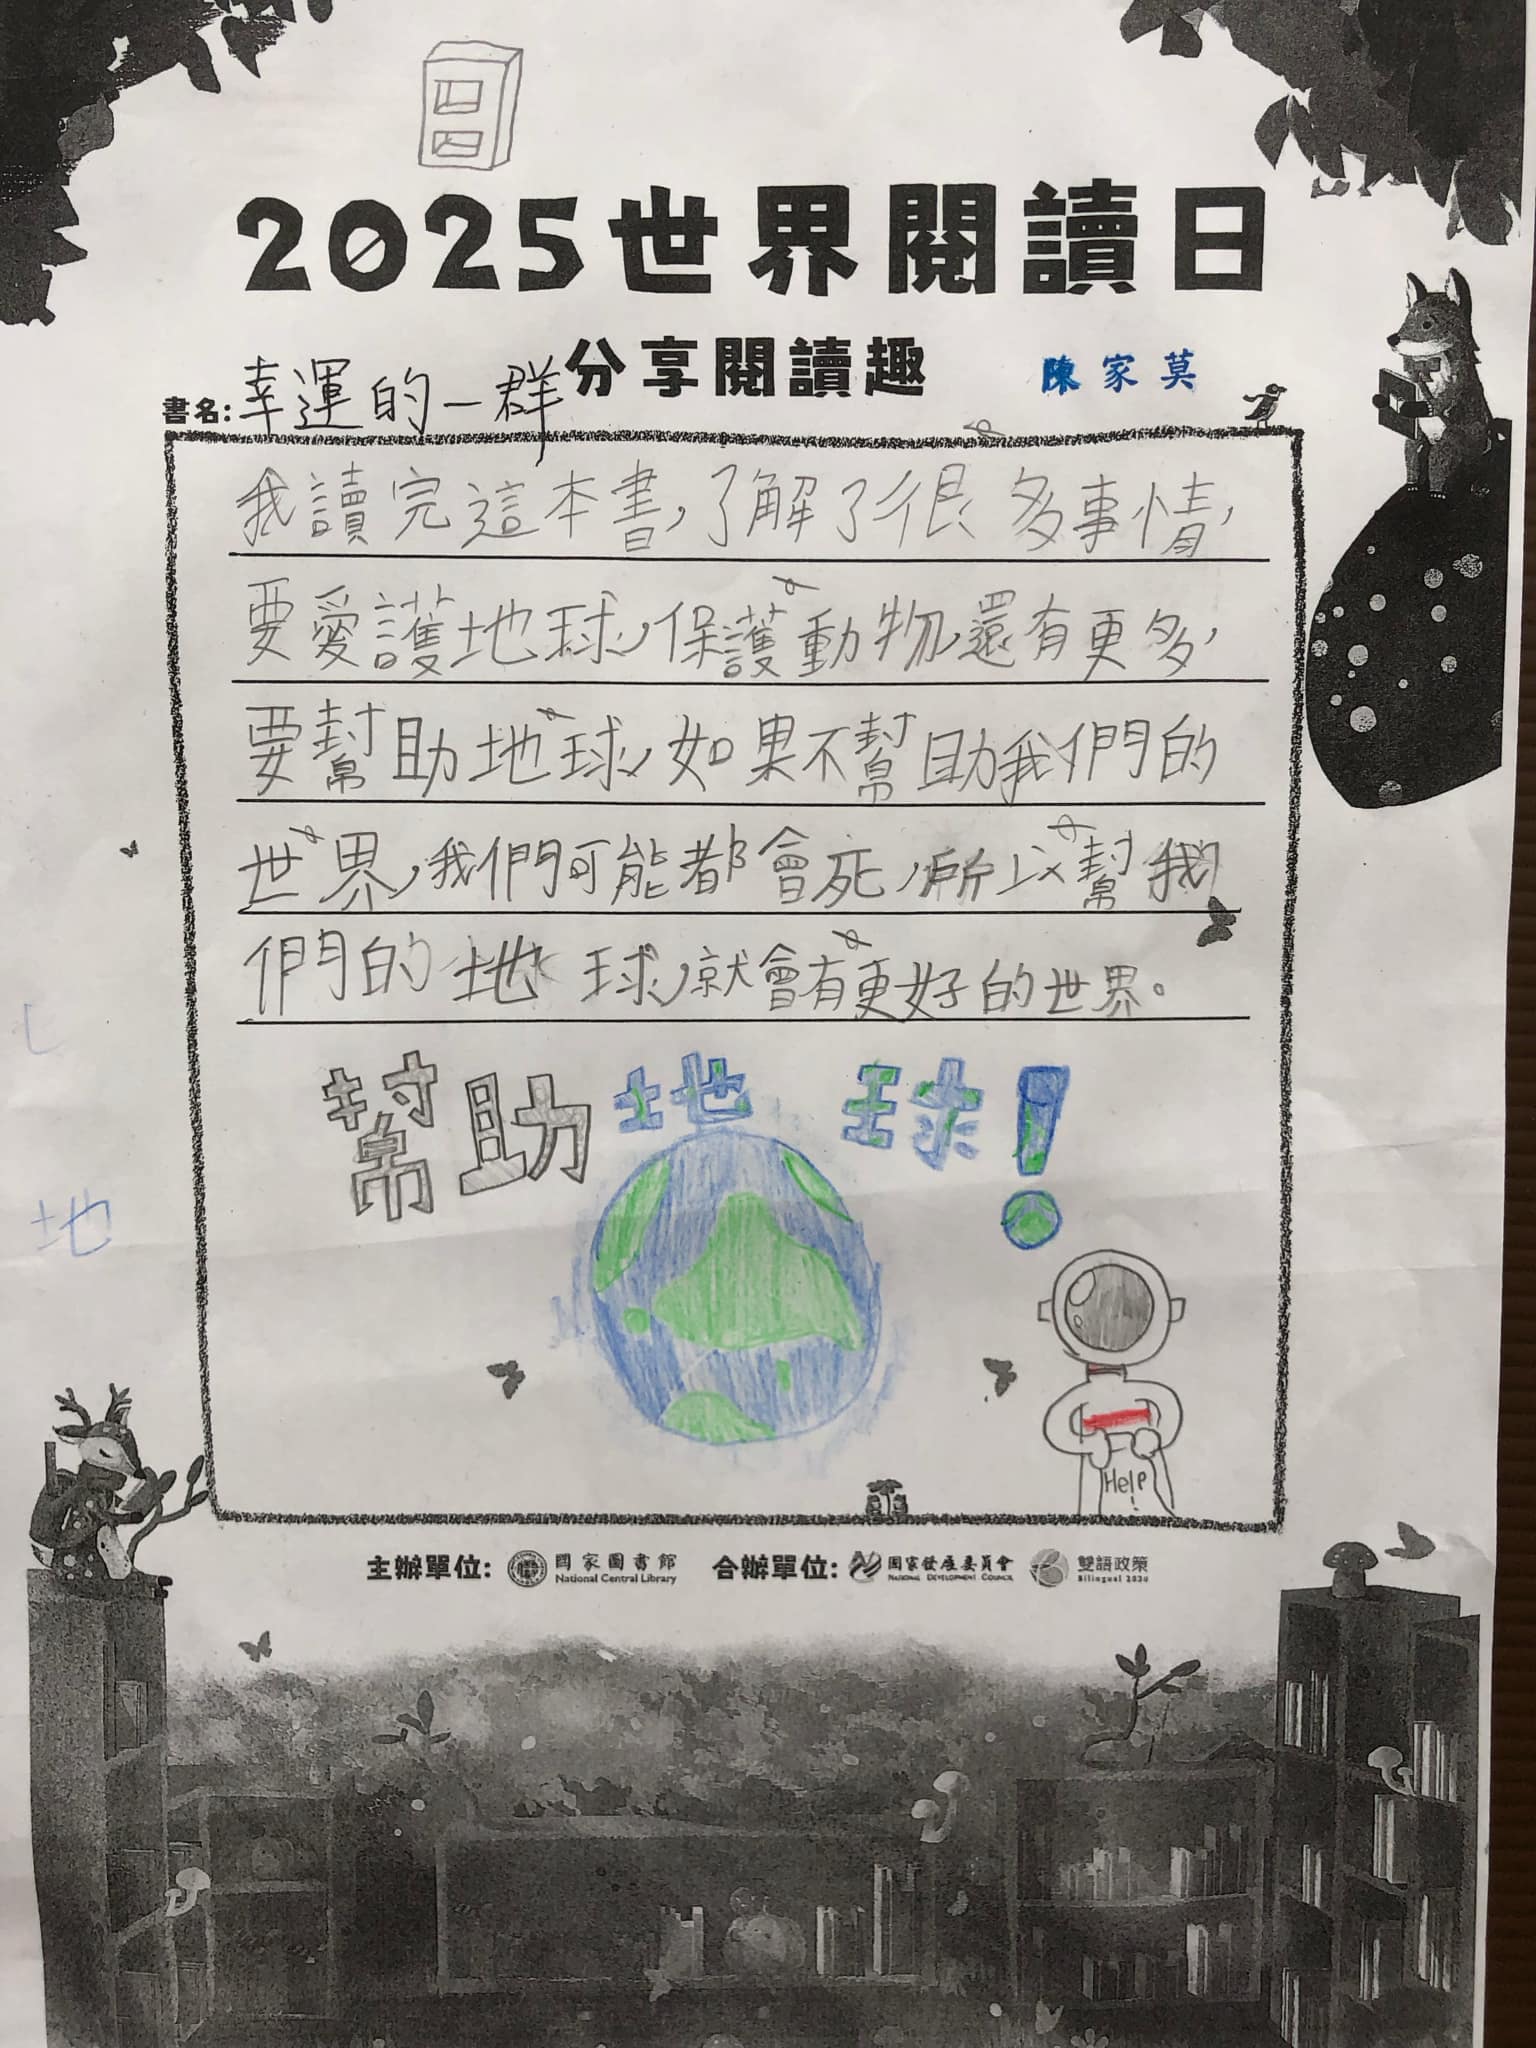 2025世界閱讀日
分享閱讀趣
陳家莫
書名:幸運的一群
我讀完這本書,了解了很多事情,
要愛護地球,保護動物,還有更多,
要幫助地球,如果不幫助我們的
世界,我們可能都會死,所以幫我
們的地球,就會有更好的世界。
幫助地球!
地
Help!
主辦單位: 國家圖書館 National Central Library 合辦單位: 國家發展委員會 National Development Council 雙語政策 Bilingual 2030